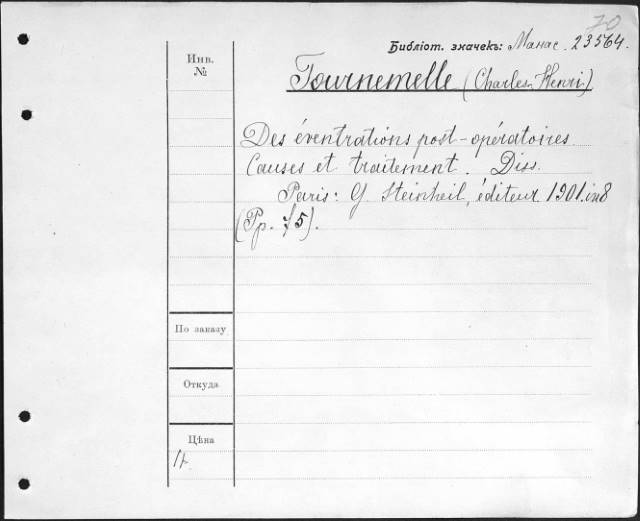 70
Библіот. значекъ: Манас. 23564.
Инв.
№
Tournemelle (Charles-Henri)
Des éventrations post-opératoires.
Causes et traitement. Diss.
Paris: G. Steinheil, éditeur 1901. in 8
(Pp. 75).
По заказу
Откуда
Цѣна